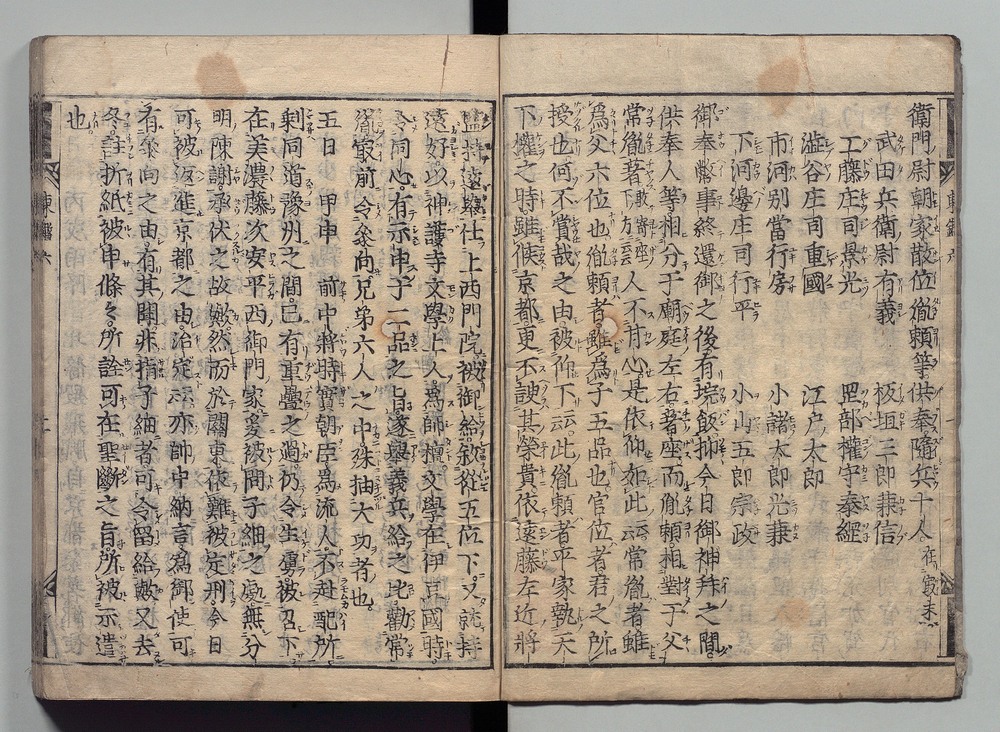 衛門尉朝家散位胤頼等供奉隨兵十人在最末
武田兵衛尉有義 板垣三郎兼信
工藤庄司景光 岡部權守泰綱
澁谷庄司重國 江戸太郎
市河別當行房 小諸太郎光兼
下河邊庄司行平 小山五郎宗政
御奉幣事終還御之後有垸飯抑今日御神拜之間
供奉人等相分于廟庭左右著座而胤頼相對于父
常胤著下敢寄座下方云云人不甘心是依仰如此云云常胤者雖
爲父六位也胤頼者雖爲子五品也官位者君之所
授也何不賞哉之由被仰下云云此胤頼者平家執天
下權之時雖候京都更不諛其榮貴依遠藤左近將
監持遠擧仕上西門院被御給敍從五位下又就持
遠好以神護寺文學上人爲師檀文學在伊豆國時
令同心有示申于二品之旨遂擧義兵給之比勸常
胤最前令參向兄弟六人之中殊抽大功者也
五日甲申 前中將時實朝臣爲流人不赴配所
剩同道豫州之間已有重疊之過仍令生虜被召下
在美濃藤次安平西御門家爰被問子細之處無分
明陳謝承伏之故歟然而於關東依難被定刑今日
可被返進京都之由治定云云亦帥中納言爲御使可
有參向之由有其聞非指子細者可令留給歟又去
冬註折紙被申條々所詮可在聖斷之旨所被示遣
也
東鑑六